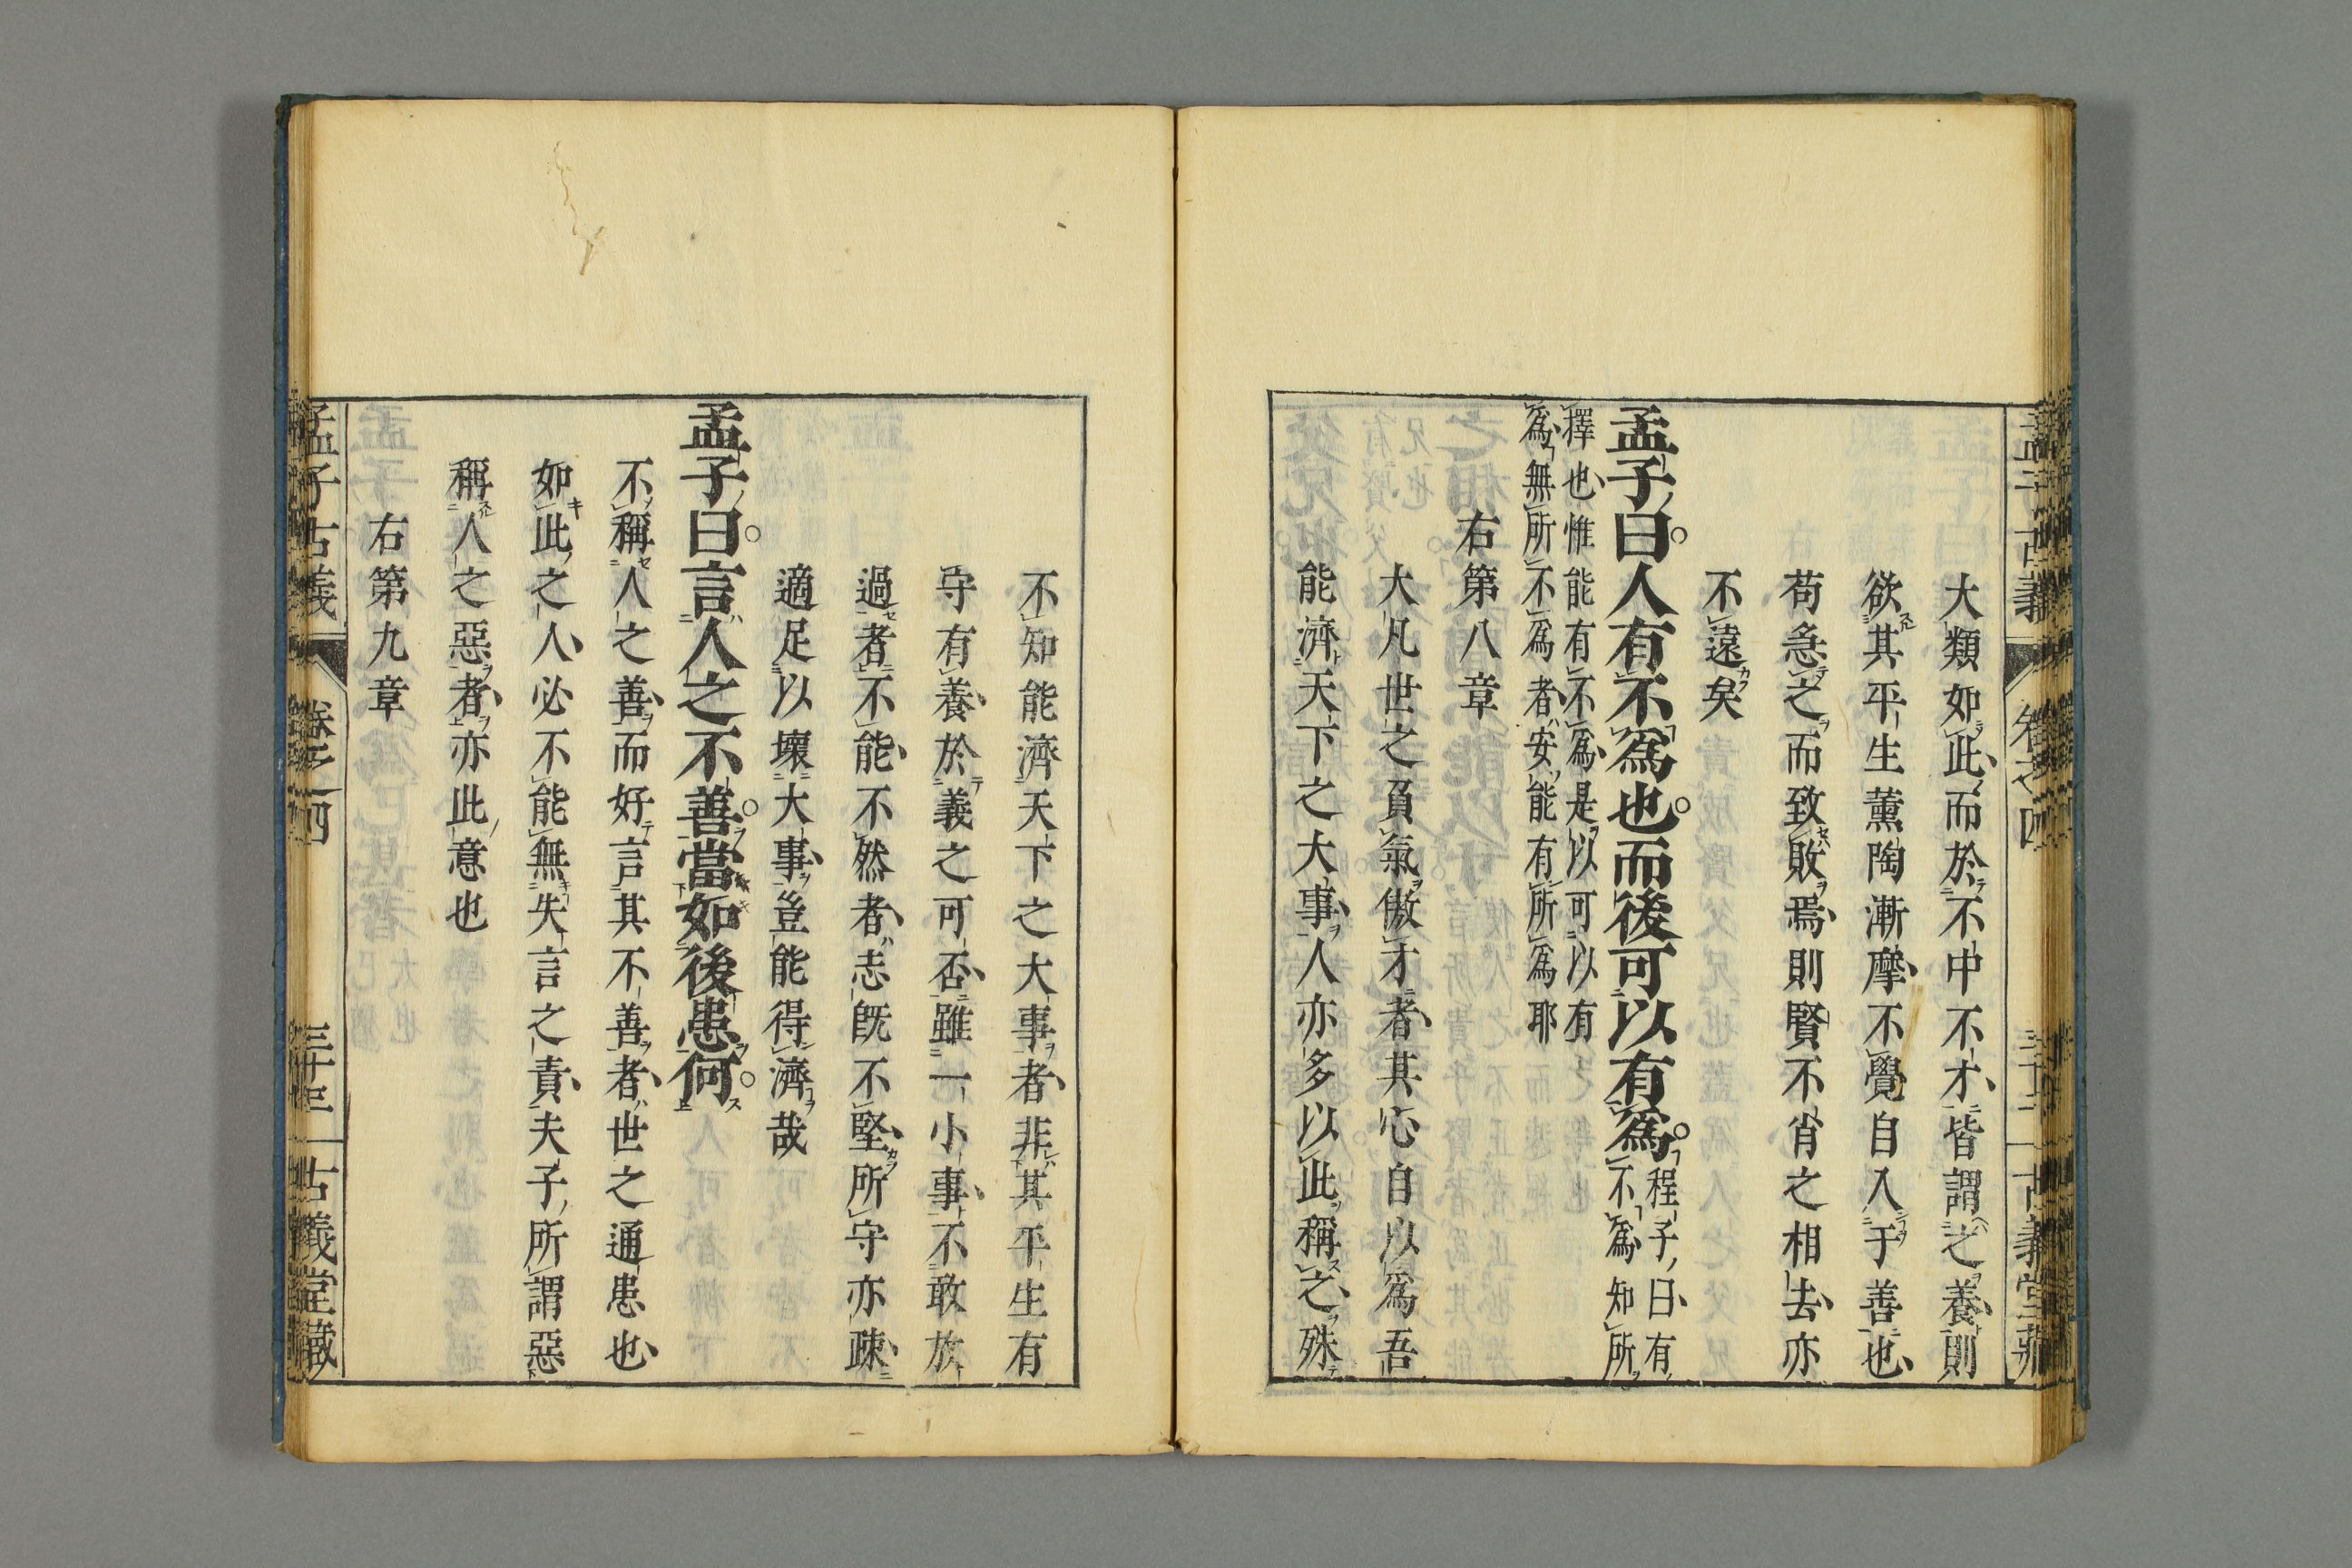 孟子古義 卷之四 古義堂藏
大類如此而於不中不才皆謂之養則
欲其平生薰陶漸摩不覺自入于善也
苟急之而致敗焉則賢不肖之相去亦
不遠矣
孟子曰人有不爲也而後可以有爲 程子曰有
不爲知所
擇也惟能有不爲是以可以有
爲無所不爲者安能有所爲耶
右第八章
大凡世之負氣傲才者其心自以爲吾
能濟天下之大事人亦多以此稱之殊
不知能濟天下之大事者非其平生有
守有養於義之可否雖一小事不敢放
過者不能不然者志既不堅所守亦疎
適足以壞大事豈能得濟哉
孟子曰言人之不善當如後患何
不稱人之善而好言其不善者世之通患也
如此之人必不能無失言之責夫子所謂惡
稱人之惡者亦此意也
右第九章
孟子古義 卷之四 三十三 古義堂藏